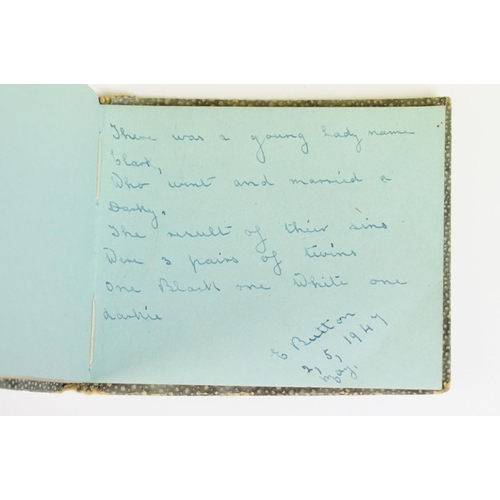 There was a young lady name
Clark,
Who went and married a
Darky,
The result of their sins
Were 3 pairs of twins
One Black one White one
darkie
E Button
2, 5, 1947
May.